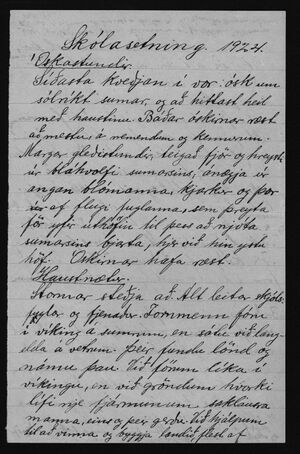 Skólasetning 1924.
Óskastundir.
Síðasta kveðjan í vor: ósk um
sólríkt sumar, og að hittast heil
með haustinu. Báðar óskirnar ræst
að mestu, á nemendum og kennurum.
Margar gleðistundir, teigað fjör og hreysti
úr blávolfi sumarsins, andeja úr
angan blómanna, kjarkur og þor
úr af flugi fuglanna, sem þreyta
för yfir úthöfin til þess að njóta
sumarsins bjarta, hjer við hin ystu
höf. Óskirnar hafa ræst.
Haustnætur.
Stormar steðja að. Alt leitar skjóls
fuglar og fjenaður. Fornmenn fóru
í víking á sumrum, en sátu við lang-
elda á vetrum. Þeir fundu lönd og
námu þau. Við förum líka í
víkingu, en við gröndum hvorki
lífi nje fjármunum saklausra
manna, eins og þeir gerðu. Við hjálpum
til að vinna og byggja landið, flest af